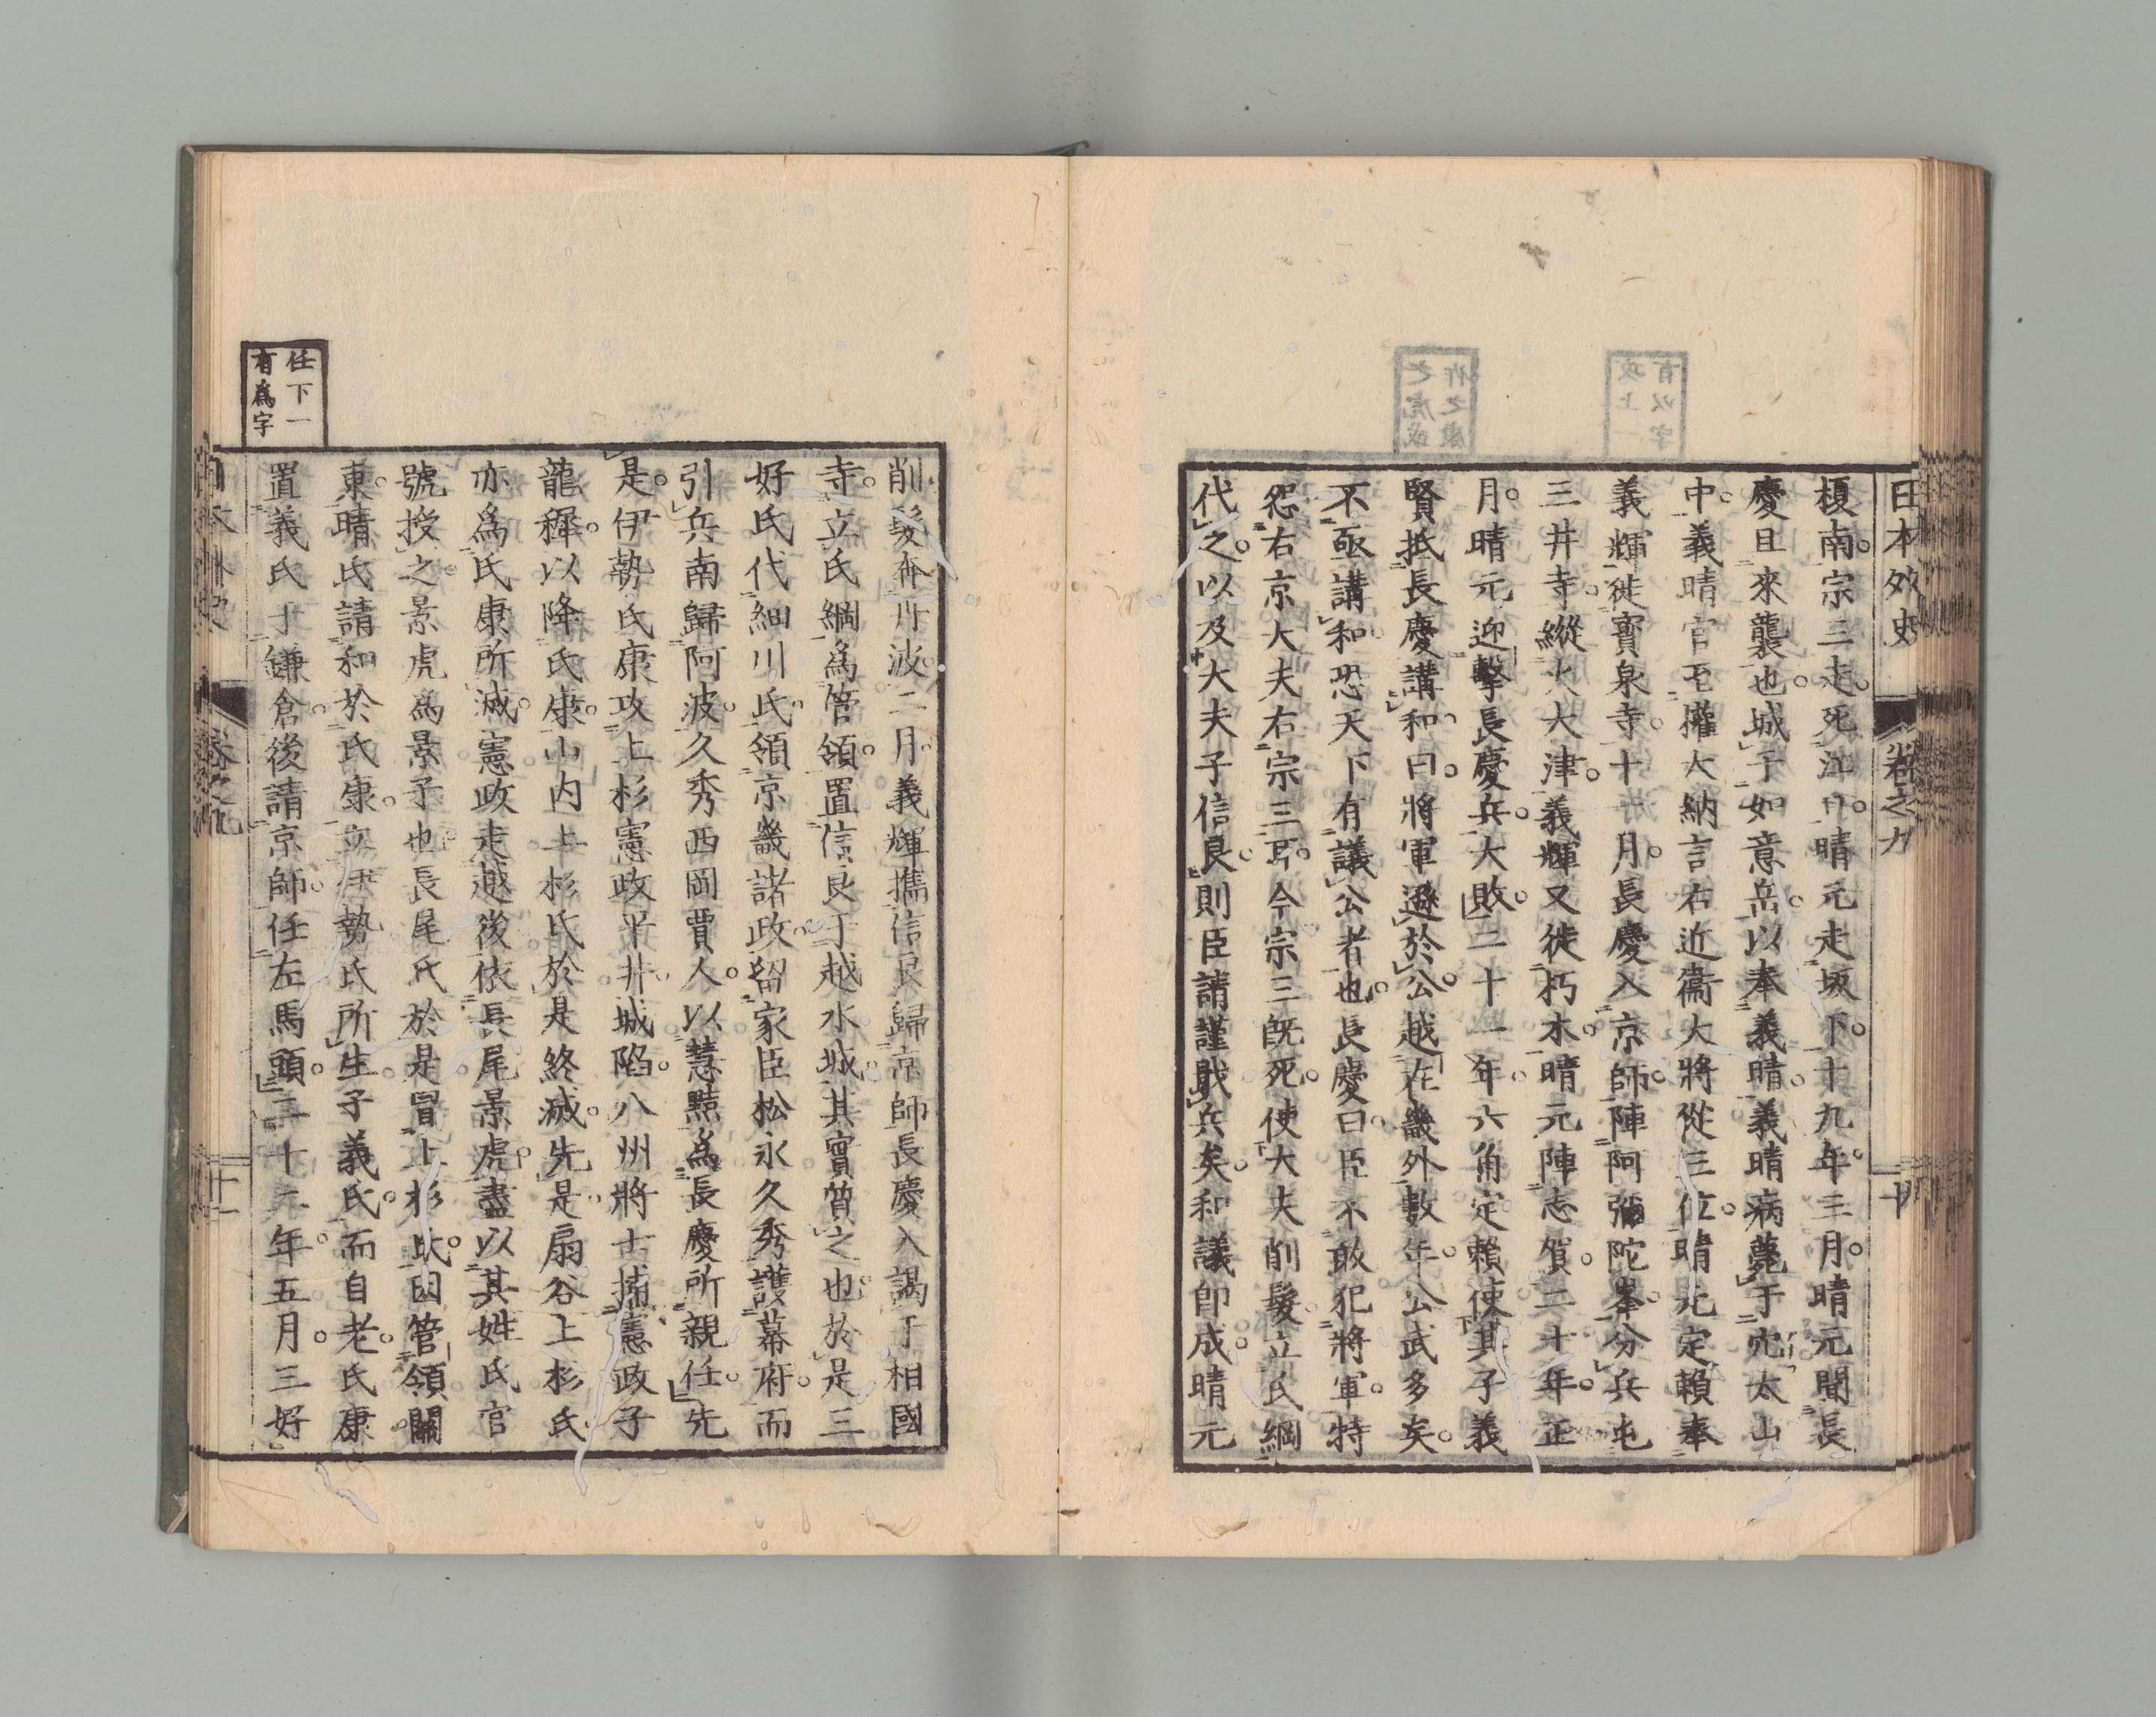 日本外史 卷之九 二十
榎南。宗三走。死江口。晴元走坂下。十九年。三月。晴元聞長
慶且來襲也。城于如意岳。以奉義晴。義晴病薨于穴太山
中。義晴官至權大納言右近衞大將從三位。晴元定賴奉
義輝徙寶泉寺。十一月。長慶入京師。陣阿彌陀峯。分兵屯
三井寺。縱火大津。義輝又徙朽木。晴元陣志賀。二十年。正
月。晴元迎擊長慶兵。大敗。二十一年。六角定賴使其子義
賢抵長慶講和。曰。將軍遜於公。越在畿外。數年。公武多矣。
不亟講和。恐天下有議公者也。長慶曰。臣不敢犯將軍。特
怨右京大夫右宗三耳。今宗三既死。使大夫削髮立氏綱
代之。以及大夫子信良。則臣請謹戢兵矣。和議即成。晴元
削髮奔丹波。二月。義輝攜信良歸京師。長慶入謁于相國
寺。立氏綱爲管領。置信良于越水城。其實質之也。於是三
好氏代細川氏。領京畿諸政。留家臣松永久秀護幕府。而
引兵南歸阿波。久秀西岡賈人。以慧黠爲長慶所親任。先
是。伊勢氏康攻上杉憲政平井城。陷。八州將士捕憲政子
龍穉。以降氏康。山内上杉氏於是終滅。先是。扇谷上杉氏
亦爲氏康所滅。憲政走越後。依長尾景虎。盡以其姓氏官
號授之景虎。爲景子也。長尾氏於是冒上杉氏。因管領關
東。晴氏請和於氏康。立伊勢氏所生子義氏。而自老。氏康
置義氏于鎌倉。後請京師。任左馬頭。二十二年。五月。三好
任下一
有爲字